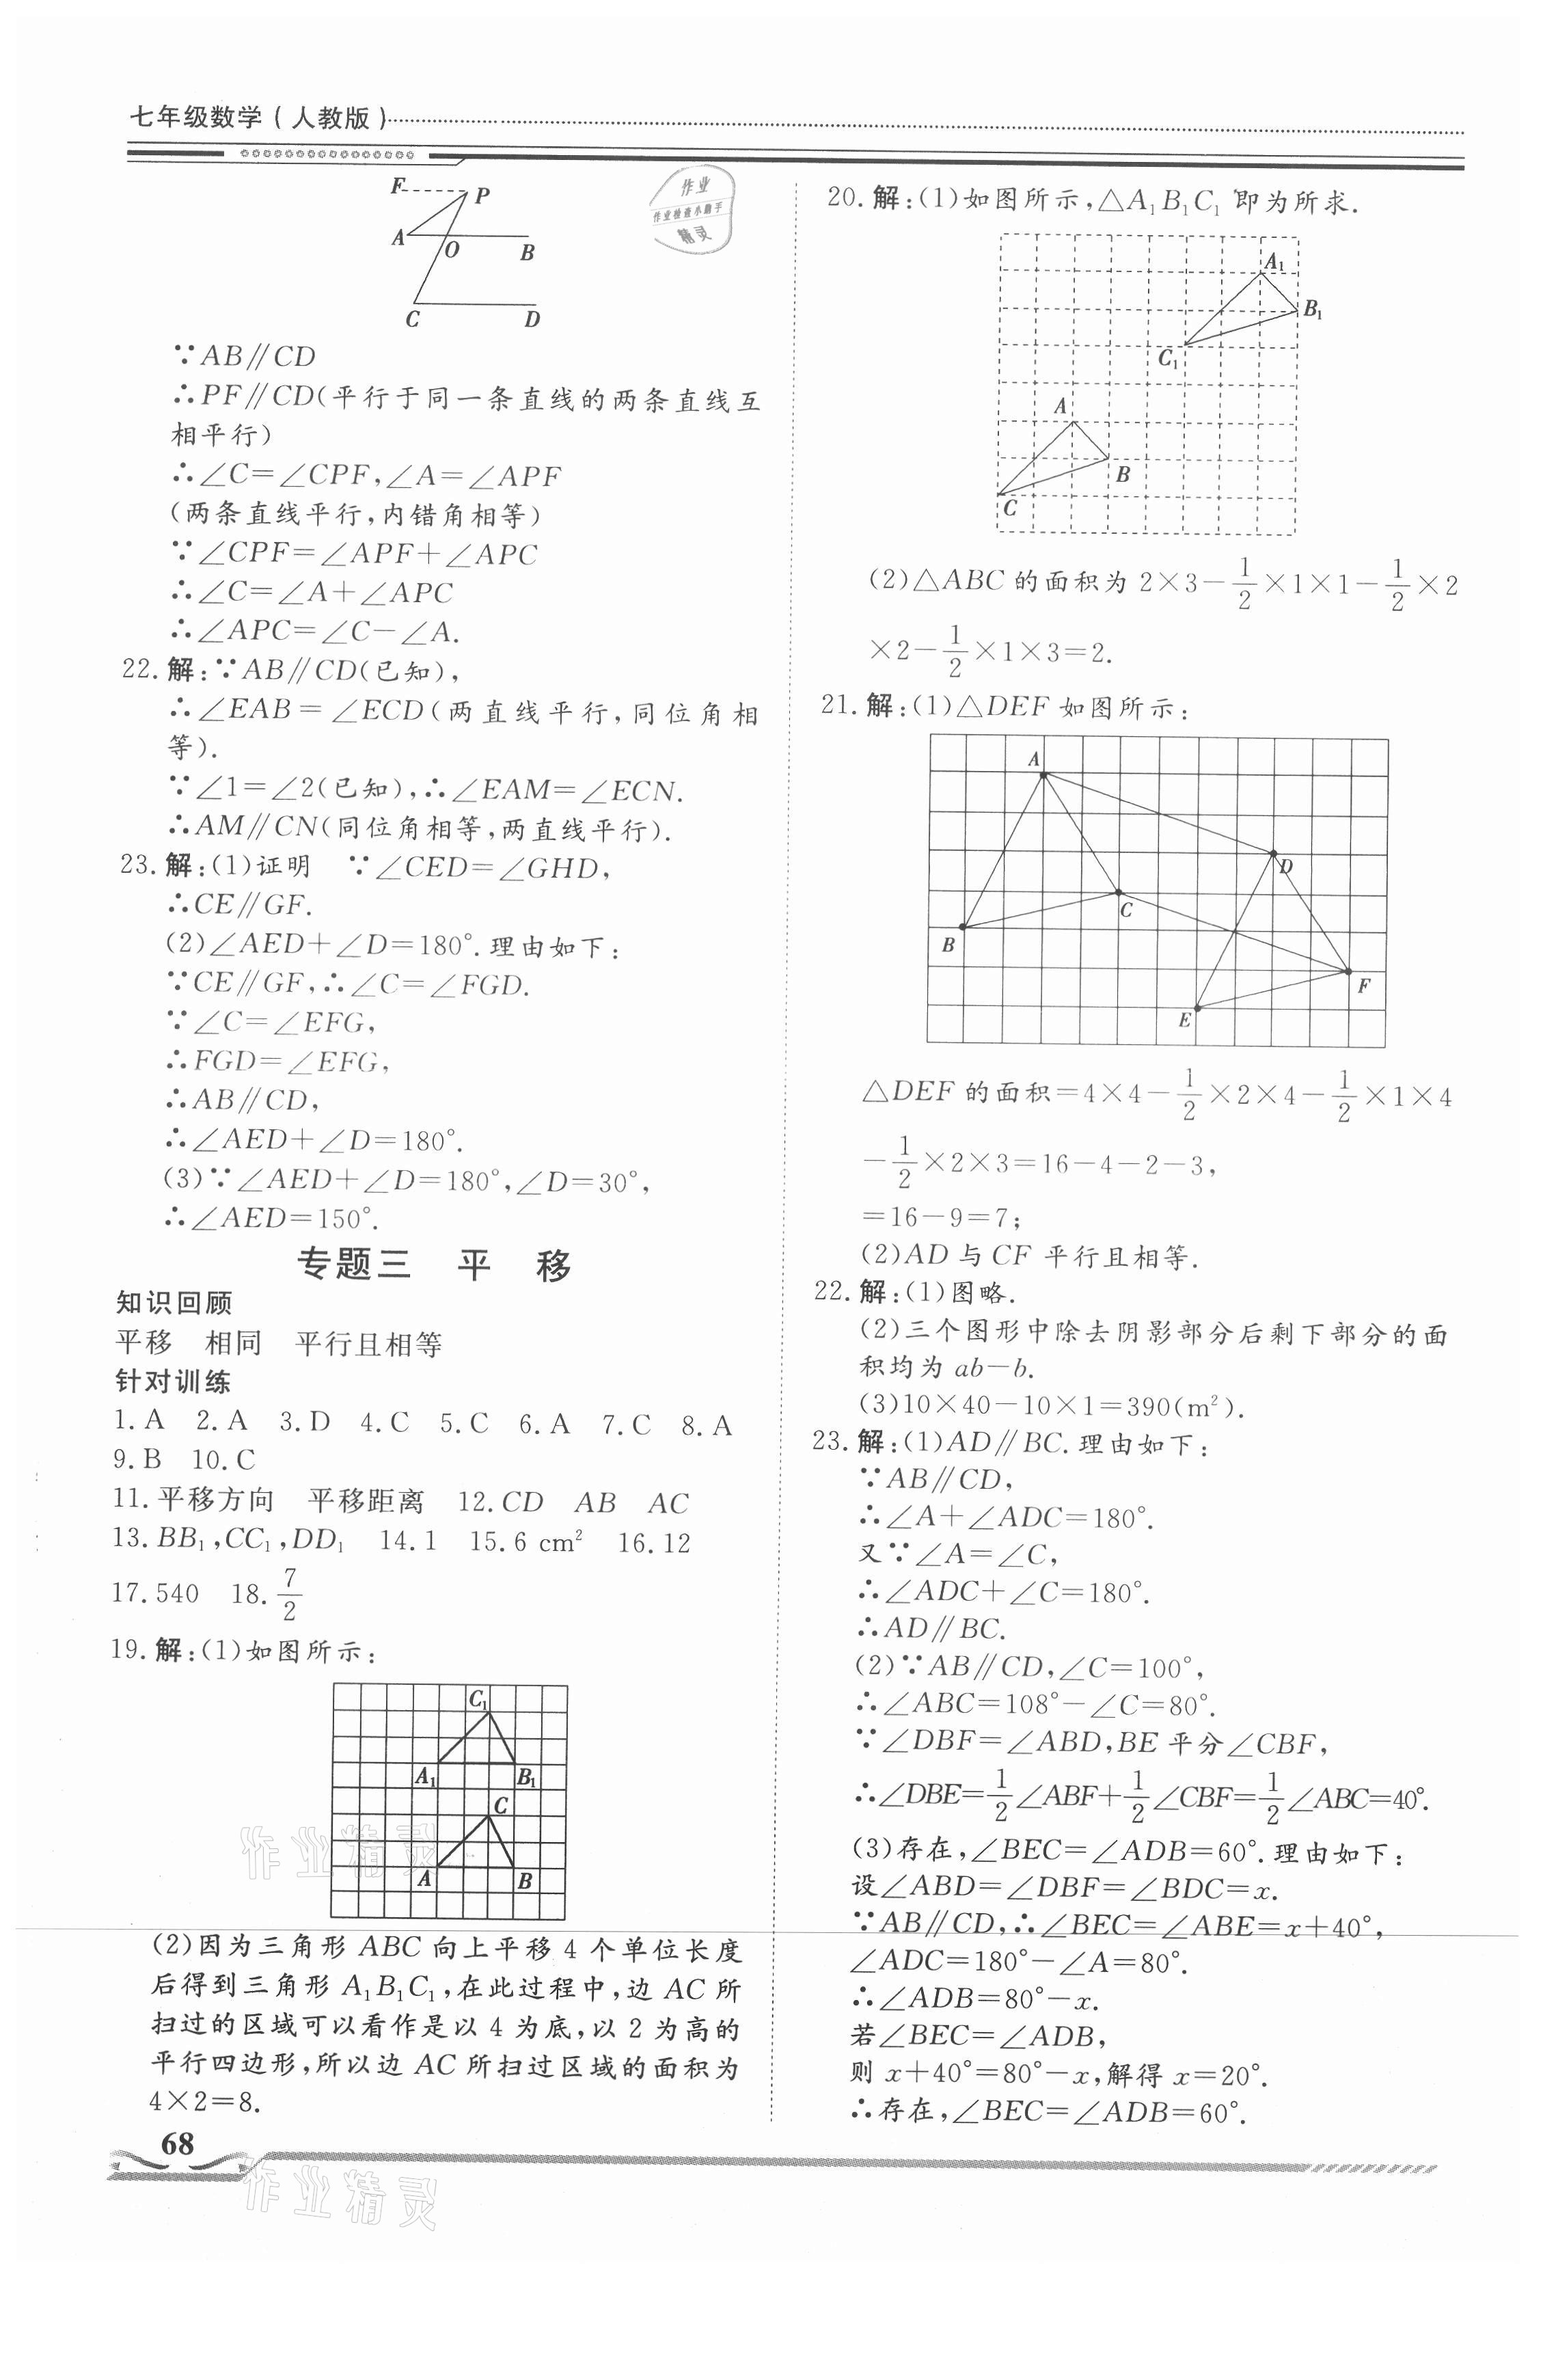 七年级数学(人教版)
F
P
A
O
B
C
D
作业
作业检查小助手
精灵
∵AB∥CD
∴PF∥CD(平行于同一条直线的两条直线互
相平行)
∴∠C=∠CPF,∠A=∠APF
(两条直线平行,内错角相等)
∵∠CPF=∠APF+∠APC
∴∠C=∠A+∠APC
∴∠APC=∠C-∠A.
22.解:∵AB∥CD(已知),
∴∠EAB=∠ECD(两直线平行,同位角相
等).
∵∠1=∠2(已知),∴∠EAM=∠ECN.
∴AM∥CN(同位角相等,两直线平行).
23.解:(1)证明 ∵∠CED=∠GHD,
∴CE∥GF.
(2)∠AED+∠D=180°.理由如下:
∵CE∥GF,∴∠C=∠FGD.
∵∠C=∠EFG,
∴FGD=∠EFG,
∴AB∥CD,
∴∠AED+∠D=180°.
(3)∵∠AED+∠D=180°,∠D=30°,
∴∠AED=150°.
专题三 平 移
知识回顾
平移 相同 平行且相等
针对训练
1.A 2.A 3.D 4.C 5.C 6.A 7.C 8.A
9.B 10.C
11.平移方向 平移距离 12.CD AB AC
13.BB₁,CC₁,DD₁ 14.1 15.6 cm² 16.12
17.540 18.7/2
19.解:(1)如图所示:
C₁
A₁
B₁
C
A
B
作业精灵
(2)因为三角形 ABC 向上平移 4 个单位长度
后得到三角形 A₁B₁C₁,在此过程中,边 AC 所
扫过的区域可以看作是以 4 为底,以 2 为高的
平行四边形,所以边 AC 所扫过区域的面积为
4×2=8.
20.解:(1)如图所示,△A₁B₁C₁即为所求.
A₁
B₁
C₁
A
B
C
(2)△ABC 的面积为 2×3-1/2×1×1-1/2×2
×2-1/2×1×3=2.
21.解:(1)△DEF 如图所示:
A
D
C
B
F
E
△DEF 的面积=4×4-1/2×2×4-1/2×1×4
-1/2×2×3=16-4-2-3,
=16-9=7;
(2)AD 与 CF 平行且相等.
22.解:(1)图略.
(2)三个图形中除去阴影部分后剩下部分的面
积均为 ab-b.
(3)10×40-10×1=390(m²).
23.解:(1)AD∥BC.理由如下:
∵AB∥CD,
∴∠A+∠ADC=180°.
又∵∠A=∠C,
∴∠ADC+∠C=180°.
∴AD∥BC.
(2)∵AB∥CD,∠C=100°,
∴∠ABC=108°-∠C=80°.
∵∠DBF=∠ABD,BE 平分∠CBF,
∴∠DBE=1/2∠ABF+1/2∠CBF=1/2∠ABC=40°.
(3)存在,∠BEC=∠ADB=60°.理由如下:
设∠ABD=∠DBF=∠BDC=x.
∵AB∥CD,∴∠BEC=∠ABE=x+40°,
∠ADC=180°-∠A=80°.
∴∠ADB=80°-x.
若∠BEC=∠ADB,
则 x+40°=80°-x,解得 x=20°.
∴存在,∠BEC=∠ADB=60°.
68
作业精灵